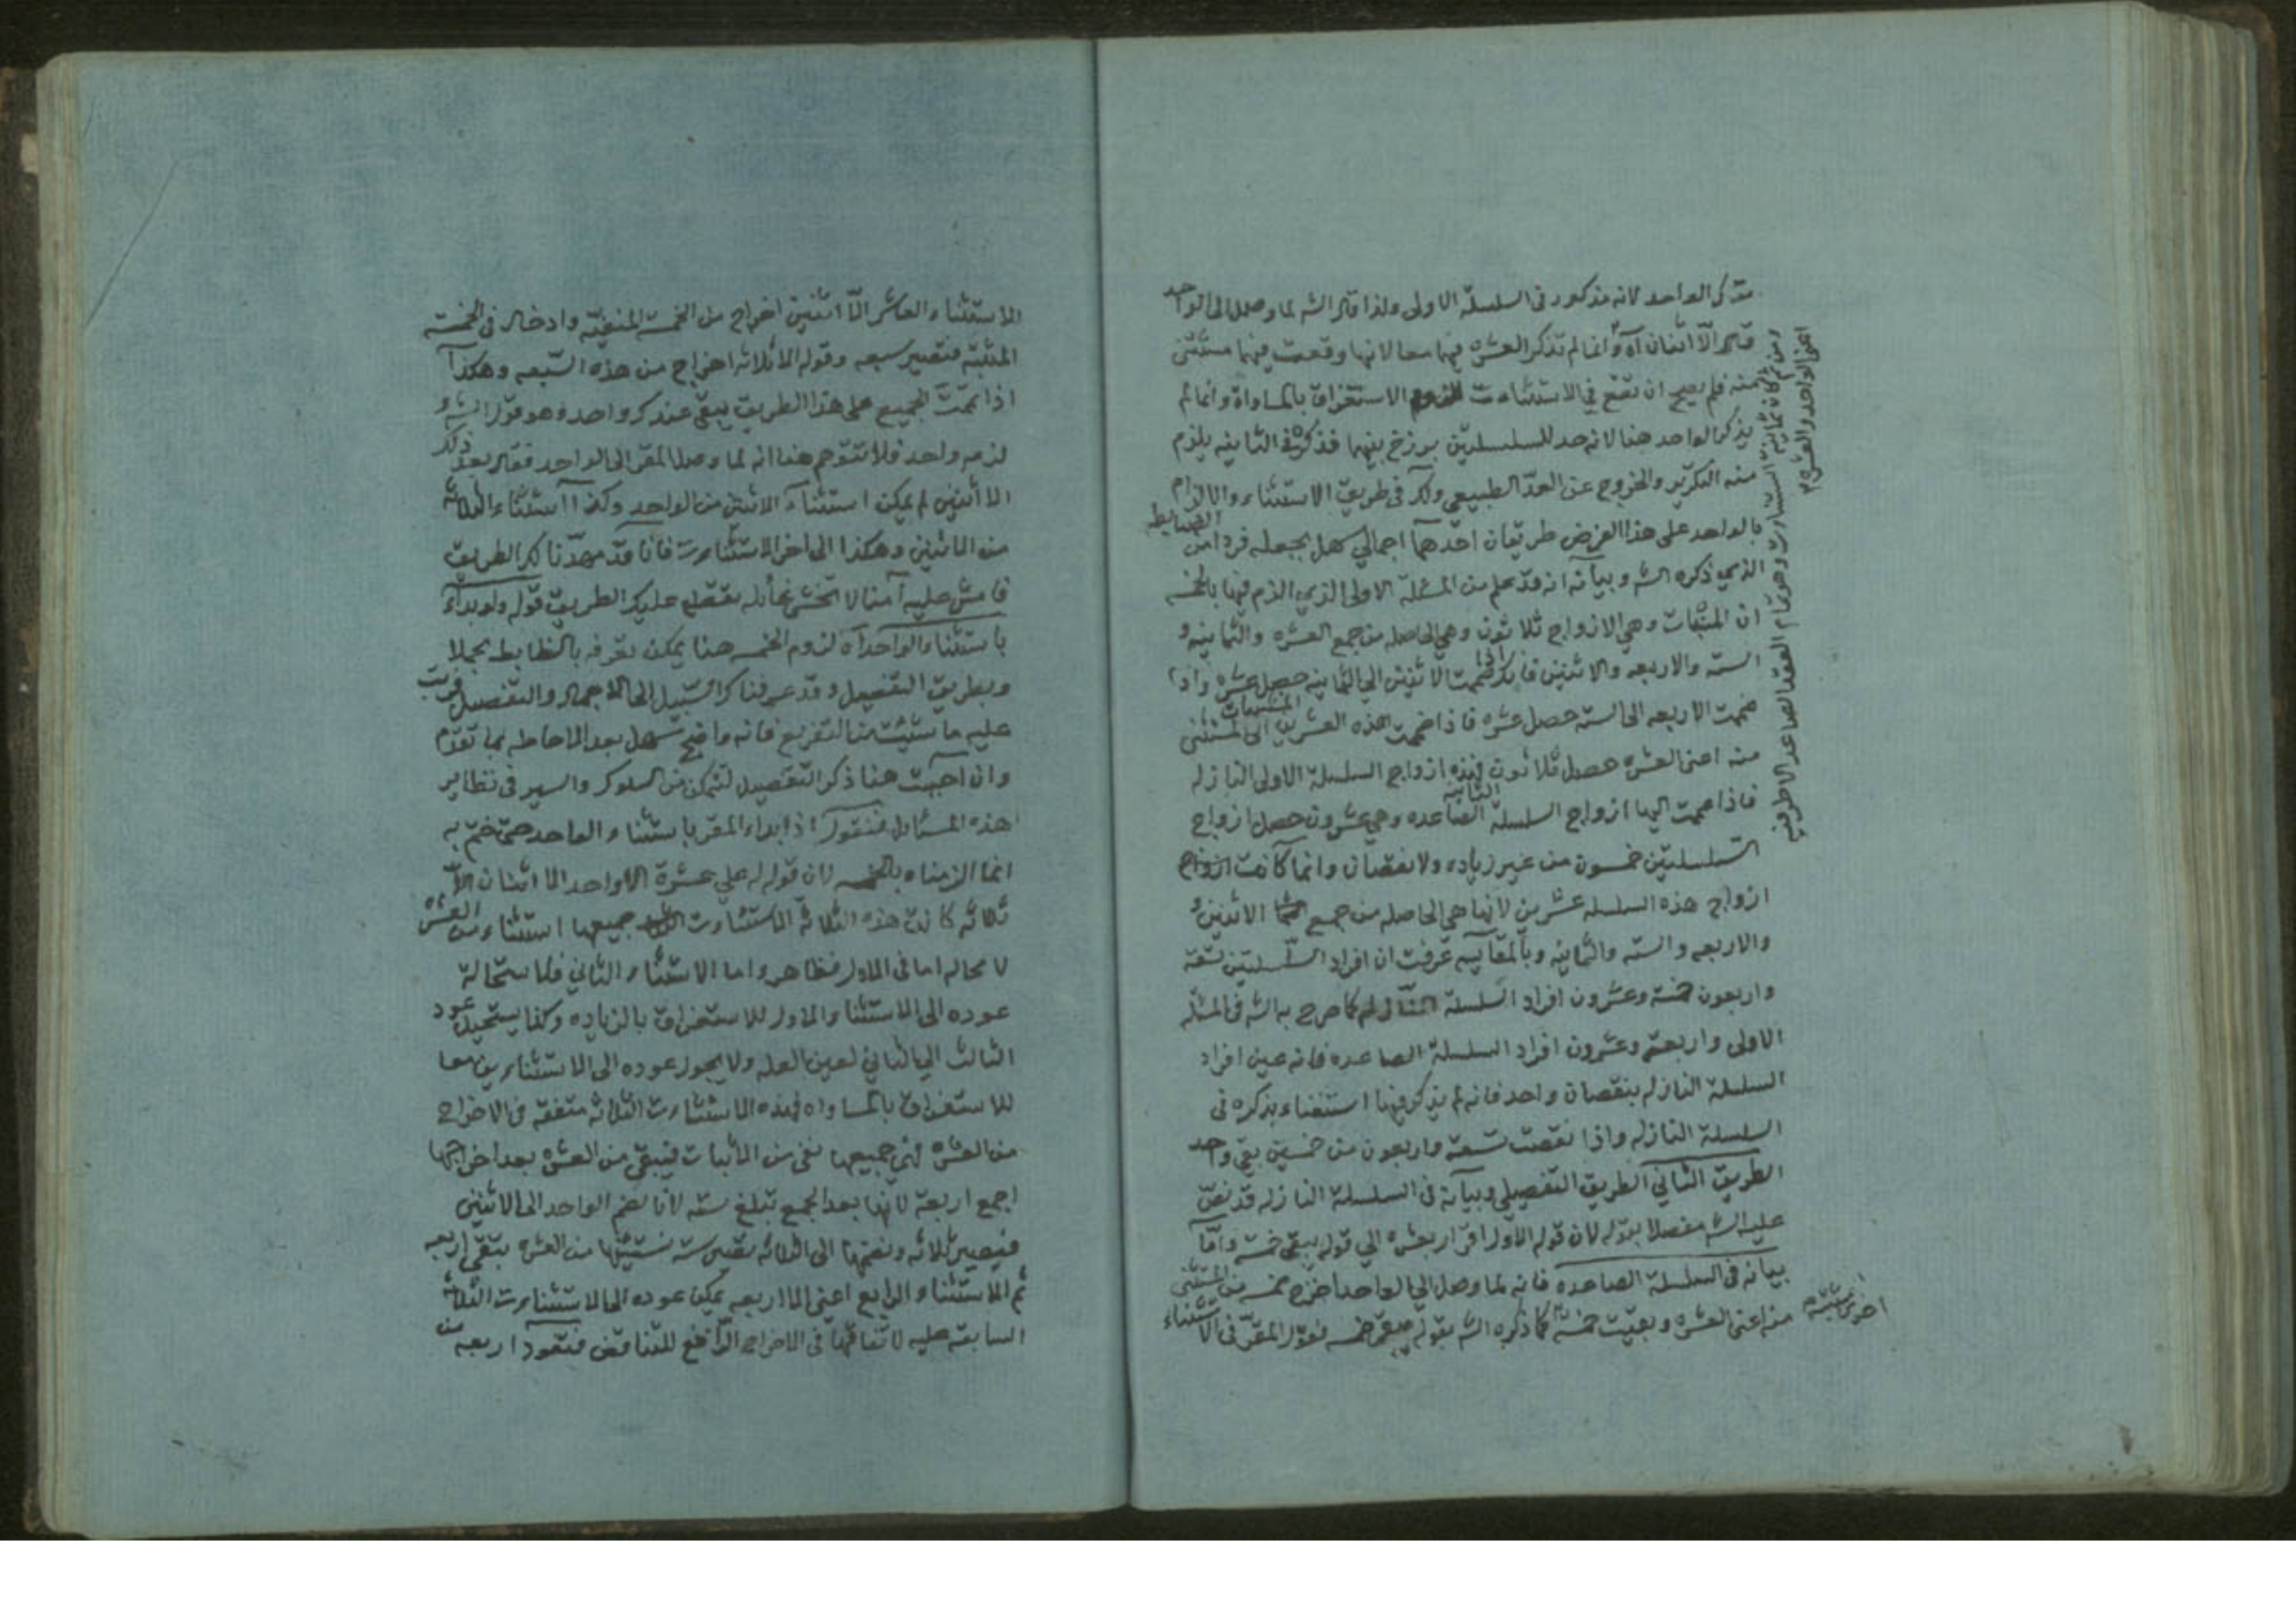 تذكر الواحد لانه مذكور في السلسلة الاولى ولذا قال الشه لما وصل الى الواحد
قال الا اثنان آه وانما لم تذكر العشره فيها معا لانها وقعت فيها مستثنى
منه فلم يصح ان تقع في الاستثناءت للزوم الاستغراق بالمساواة وانما لم
يذكر الواحد هنا لانه حد للسلسلتين برزخ بينهما فذكره في الثانيه يلزم
منه التكرير والخروج عن العدّ الطبيعي ولك في طريق الاستثناء والالزام
بالواحد على هذا الفرض طريقان احدهما اجمالي سهل بجعله فردا من الضابطه
الذي ذكره الشه وبيانه انه قد علم من المسئلة الاولى الذي الزم فيها بالخمسه
ان المثبتات وهي الازواج ثلاثون وهي الحاصله من جمع العشره والثمانيه و
الستة والاربعه والاثنين فانك اذا ضممت الاثنين الى الثمانيه حصل عشره واذا
ضممت الاربعه الى الستة حصل عشره فاذا ضممت هذه العشرين المثبتات الى المستثنى
منه اعنى العشره حصل ثلاثون فهذه ازواج السلسلة الاولى النازله
فاذا ضممت اليها ازواج السلسلة الثانيه الصاعده وهي عشرون حصل ازواج
السلسلتين خمسون من غير زياده ولا نقصان وانما كانت ازواج
ازواج هذه السلسله عشرين لانها هي الحاصله من جمع الاثنين و
والاربعه والسته والثمانيه وبالمقايسه عرفت ان افراد السلسلتين تسعة
واربعون خمسة وعشرون افراد السلسلة كما صرح به الشه في المسئلة
الاولى واربعة وعشرون افراد السلسلة الصاعده فانه عين افراد
السلسلة النازله بنقصان واحد فانه لم يذكر فيها استغناء بذكره في
السلسلة النازله واذا نقصت تسعة واربعون من خمسين بقي واحد
الطريق الثاني الطريق التفصيلي وبيانه في السلسلة النازله قد نصّ
عليه الشه مفصلا بقوله لان قوله الاول اقرار بعشره الى قوله يبقى خمسة وامّا
بيانه في السلسلة الصاعده فانه لما وصل الى الواحد اخرج خمسه من المستثنى
منه اعنى العشره وبقيت خمسة كما ذكره الشه بقوله يبقى خمسه فقول المقرّ في الاستثناء
ومن ثم كان ثمانية الستثناءت وهو تمام العقد الصاعد الا طرفيه
اعنى الواحد والعشره
اخرى مثبتة
الاستثناء العاشر الّا اثنين اخراج من الخمسة المنفيّه وادخال في الخمسة
المثبتة فتصير سبعه وقوله الا ثلاثه اخراج من هذه السّبعه وهكذا
اذا تمّت الجميع على هذا الطريق يبقى عندك واحد وهو قول الشه و
لزمه واحد فلا تتوهم هنا انه لما وصل المقر الى الواحد فقال بعد ذلك
الا اثنين لم يمكن استثناء الاثنين من الواحد وكذا استثناء الثلاثة
من الاثنين وهكذا الى اخر الاستثناءت فانا قد مهدّنا لك الطريق
فامش عليه آمنا لا تخش غائله تقطع عليك الطريق قوله ولو بداء
باستثناء الواحد آه لزوم الخمسه هنا يمكن تعرفه بالضابط مجملا
وبطريق التفصيل وقد عرفناك السّبيل الى الاجمال والتفصيل فرتب
عليه ما شئت من التفريع فانه واضح سهل بعد الاحاطه بما تقدّم
وان احببت هنا ذكر التفصيل لتتمكن من السلوك والسير في نظاير
هذه المسائل فنقول اذا بداء المقر باستثناء الواحد حتى ختم به
انما الزمناه بالخمسه لان قوله له علي عشرة الا واحد الا اثنان الّا
ثلاثه كانت هذه الثلاثة الاستثناءت جميعها استثناء من العشره
لا محاله اما في الاول فظاهر واما الاستثناء الثاني فلاستحالة
عوده الى الاستثناء الاول للاستغراق بالزياده وكذا يستحيل عود
الثالث الى الثاني لعين العله ولا يجوز عوده الى الاستثناءين معا
للاستغراق بالمساواه فهذه الاستثناءت الثلاثه متفقه في الاخراج
من العشره فهي جميعها نفى من الاثبات فيبقى من العشره بعد اخراجها
اجمع اربعة لانها بعد الجمع تبلغ سته لانا نضم الواحد الى الاثنين
فيصير ثلاثه ونضمها الى الثلاثه تصير سته نستثنيها من العشره يبقى اربعه
ثم الاستثناء الرابع اعنى الا اربعه يمكن عوده الى الاستثناءت الثلاثة
السابقه عليه لاتفاقها في الاخراج الرافع للتناقض فتعود اربعه من